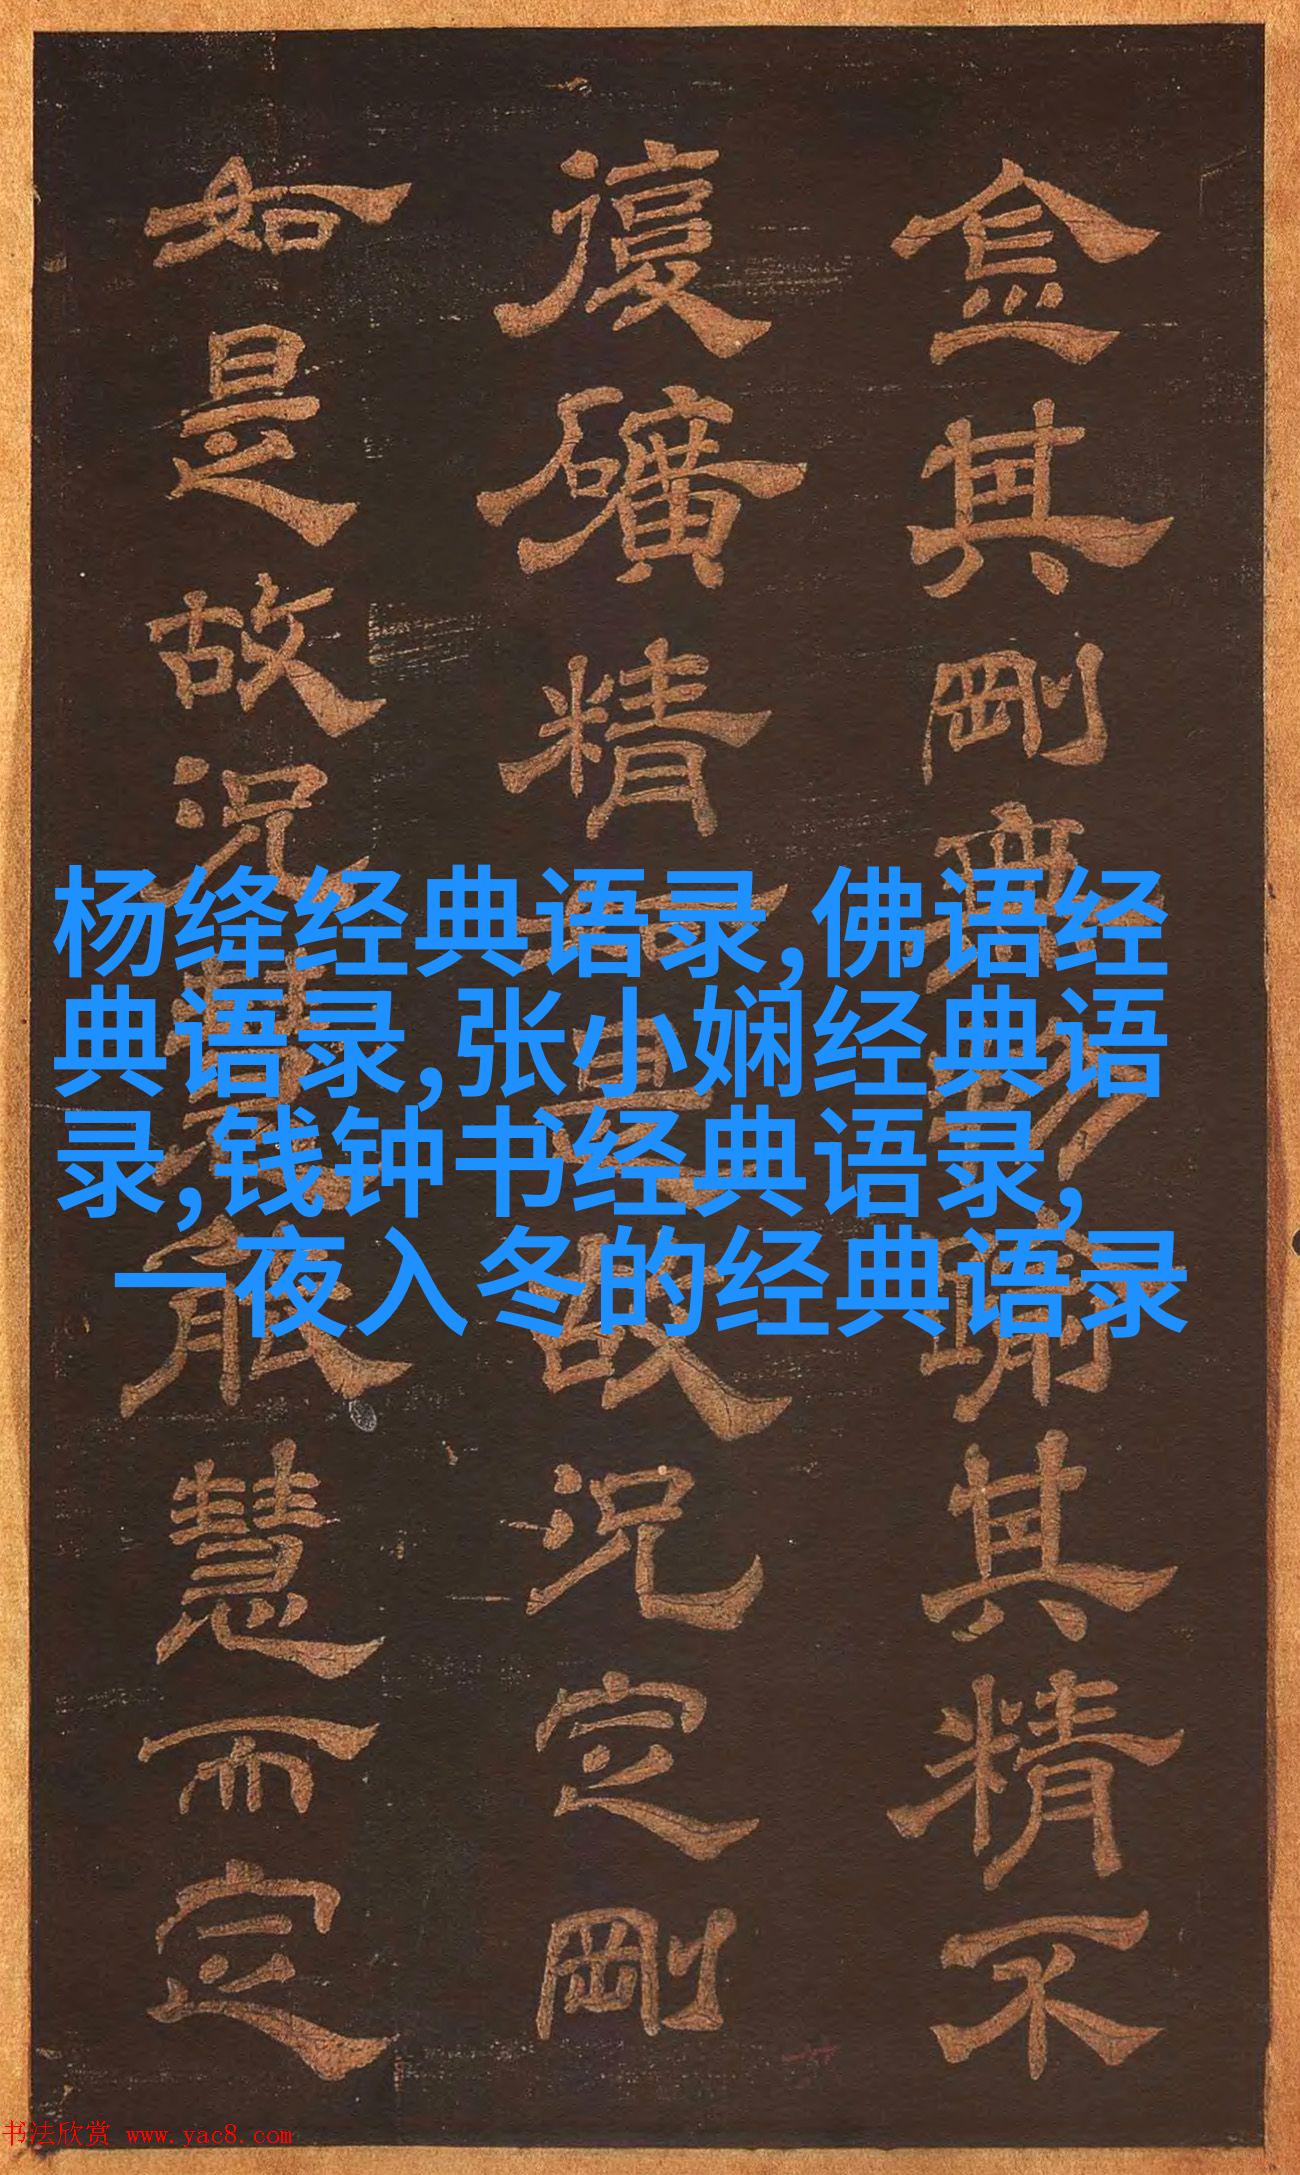 金其剛無其精不
復礦精故況定剛
如是故況能慧而定
杨绛经典语录,佛语经
典语录,张小娴经典语
录,钱钟书经典语录,
一夜入冬的经典语录
书法欣赏 www.yac8.com